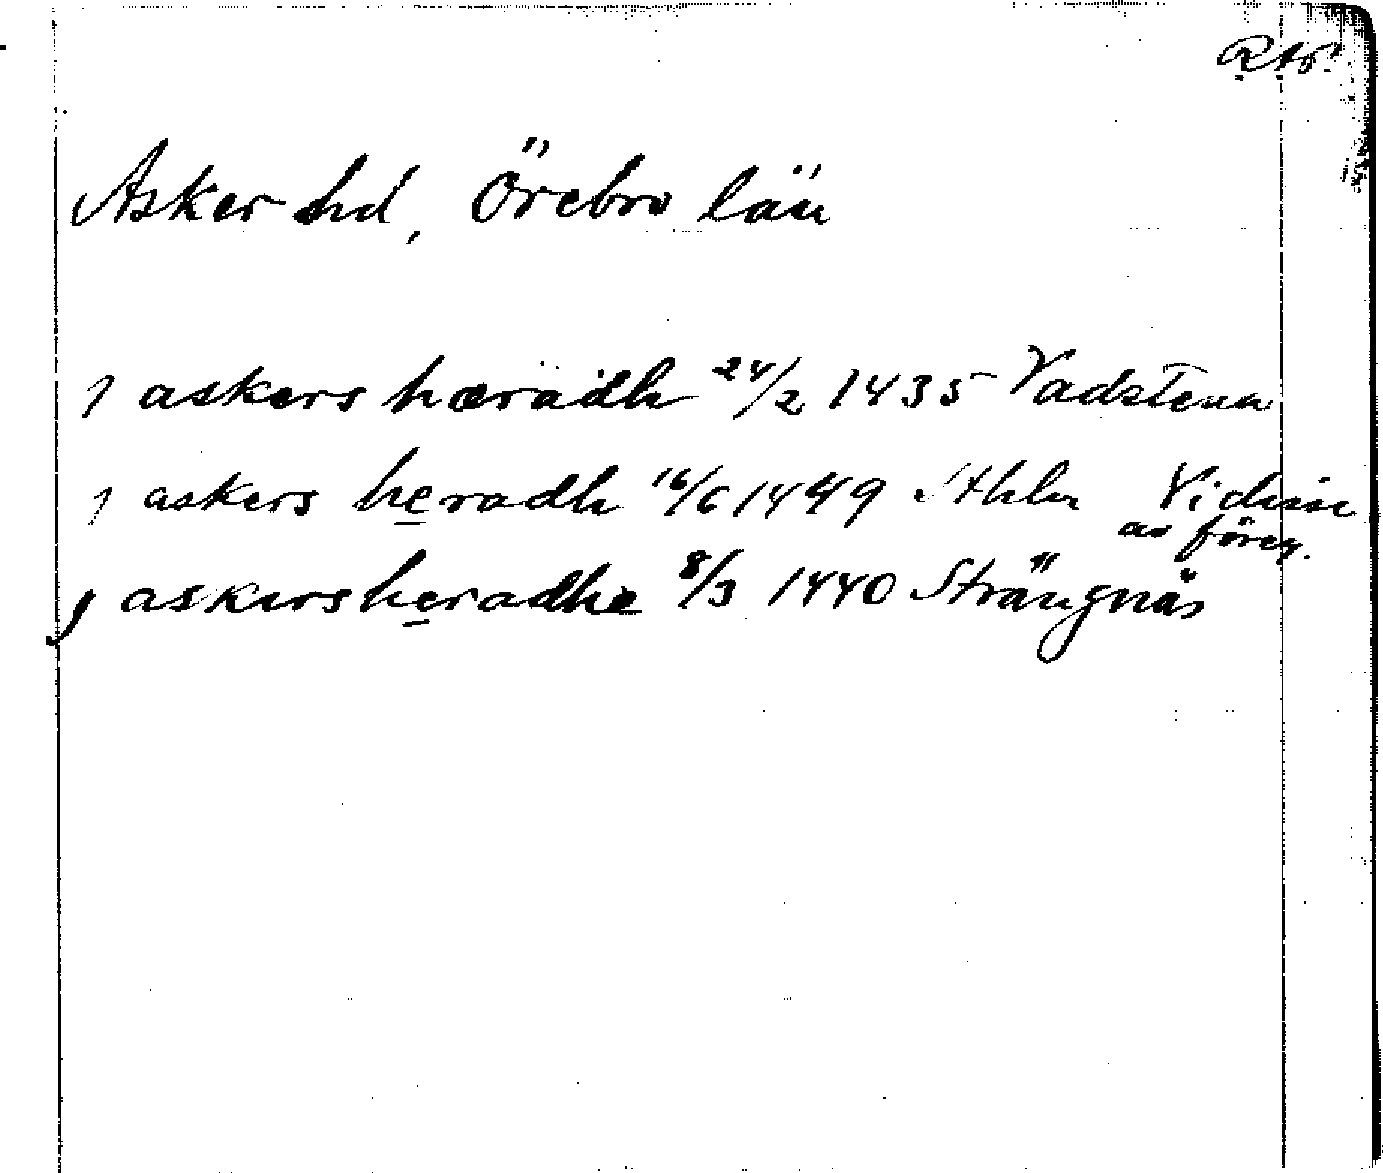 Asker hd, Örebro län
j askers hæradh 24/2 1435 Vadstena
j askers heradh 16/6 1449 Sthlm Vidisse
av föreg.
j askersheradhe 8/3 1440 Strängnäs